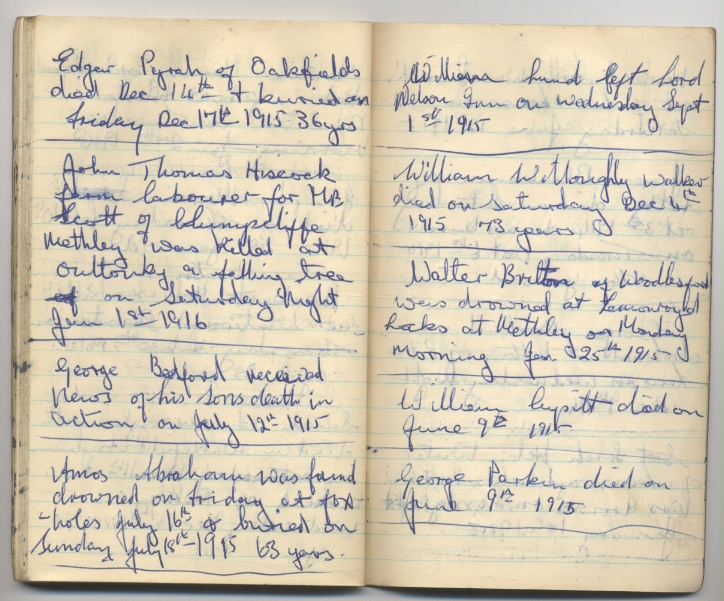 Edgar Pyrah of Oakfields
died Dec 14th + buried on
friday Dec 17th 1915 36 yrs
John Thomas Hiscock
farm labourer for MR
Scott of Clumpcliffe
Methley was killed at
Oultonby a falling tree
on Saturday Night
Jan 1st 1916
George Bedford received
News of his sons death in
action on July 12th 1915
Amos Abraham was found
drowned on friday at fox
-holes July 16th & buried on
Sunday July 18th 1915 63 years.
William hund left Lord
Nelson Inn on Wednesday Sept
1st 1915
William Willoughby Walker
died on Saturday Dec 4th
1915 73 years
Walter Britton of Woodlesford
was drowned at Lemonroyd
Locks at Methley on Monday
Morning Jan 25th 1915
William Lupitt died on
June 9th 1915
George Parkin died on
June 9th 1915